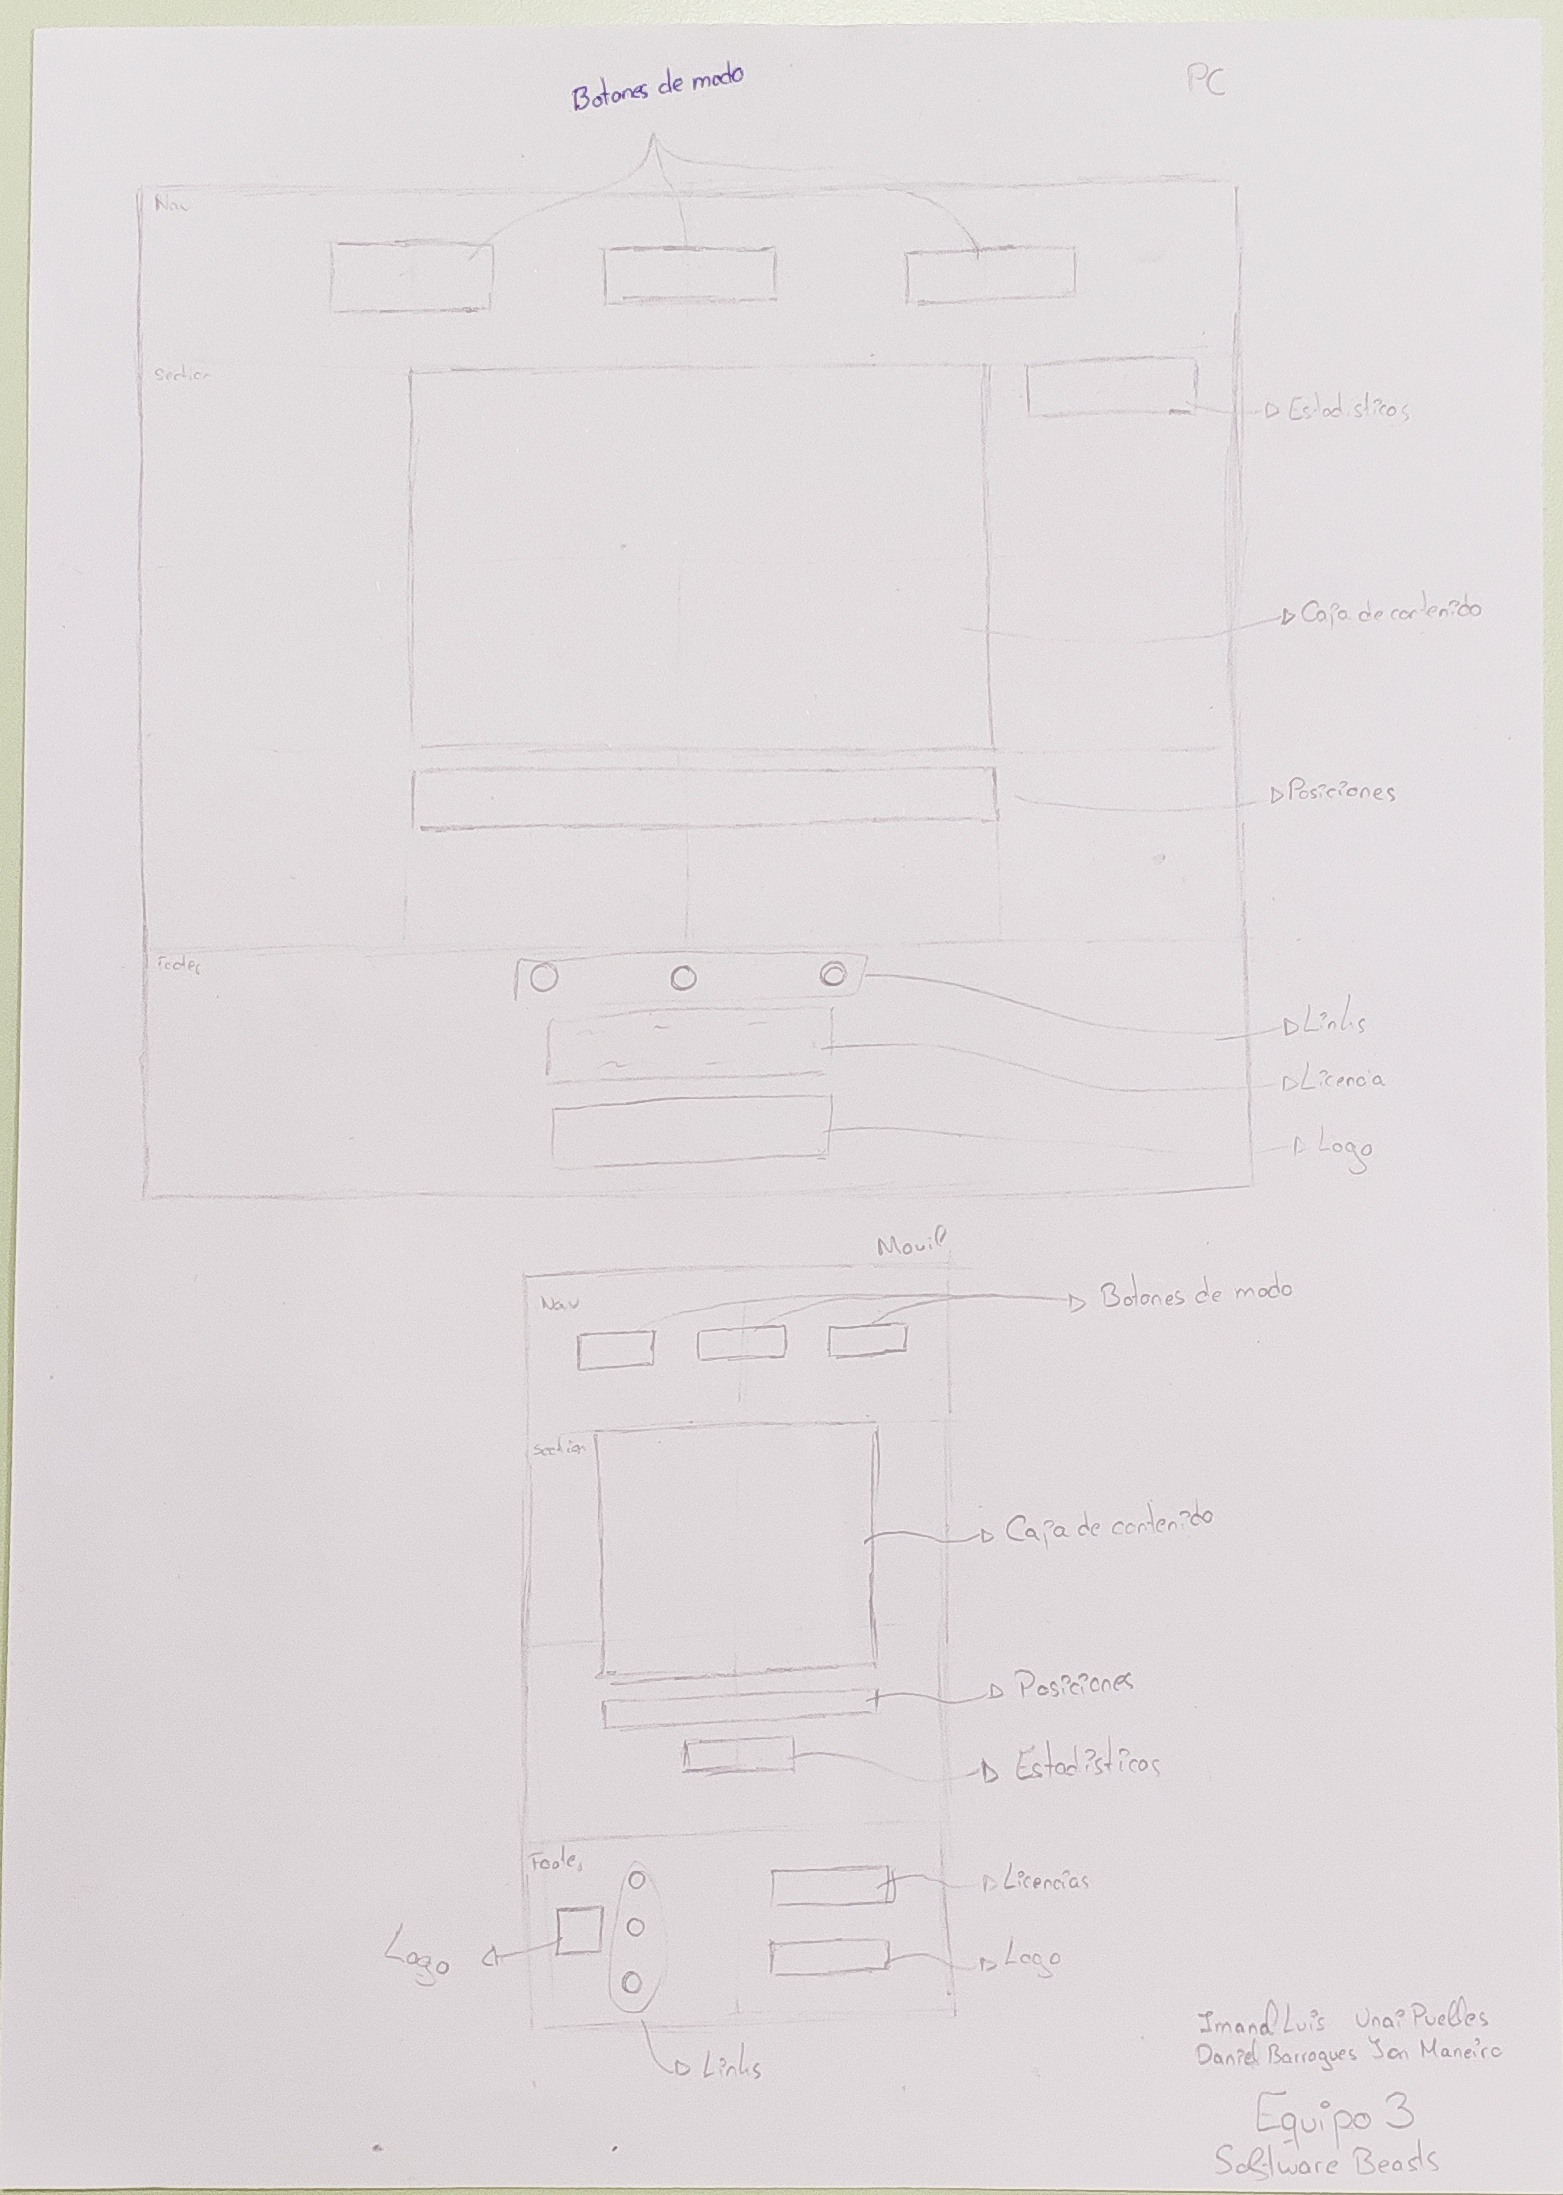 Botones de modo
PC
Nav
Section
Estadisticos
Caja de contenido
Posiciones
Footer
Links
Licencia
Logo
Movil
Nav
Botones de modo
Section
Caja de contenido
Posiciones
Estadisticos
Footer
Licencias
Logo
Logo
Links
Imanol Luis Unai Puelles
Daniel Barragues Jon Maneiro
Equipo 3
Software Beasts